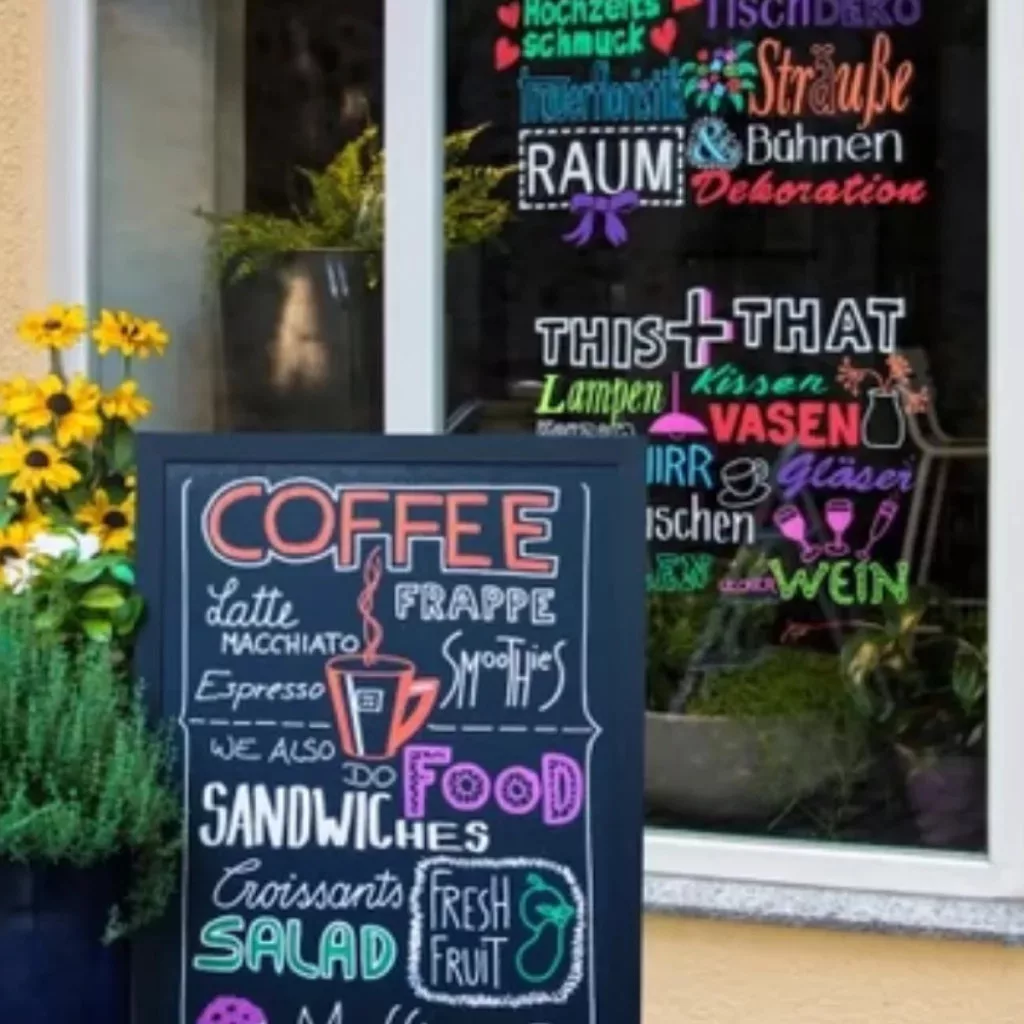 Hochzeits
schmuck
TischDEKO
Trauerfloristik
Sträuße
RAUM
& Bühnen
Dekoration
THIS + THAT
Lampen
Kissen
VASEN
Gläser
WEIN
COFFEE
Latte
MACCHIATO
FRAPPE
Espresso
SMOOTHIES
WE ALSO
DO
FOOD
SANDWICHES
Croissants
FRESH
FRUIT
SALAD